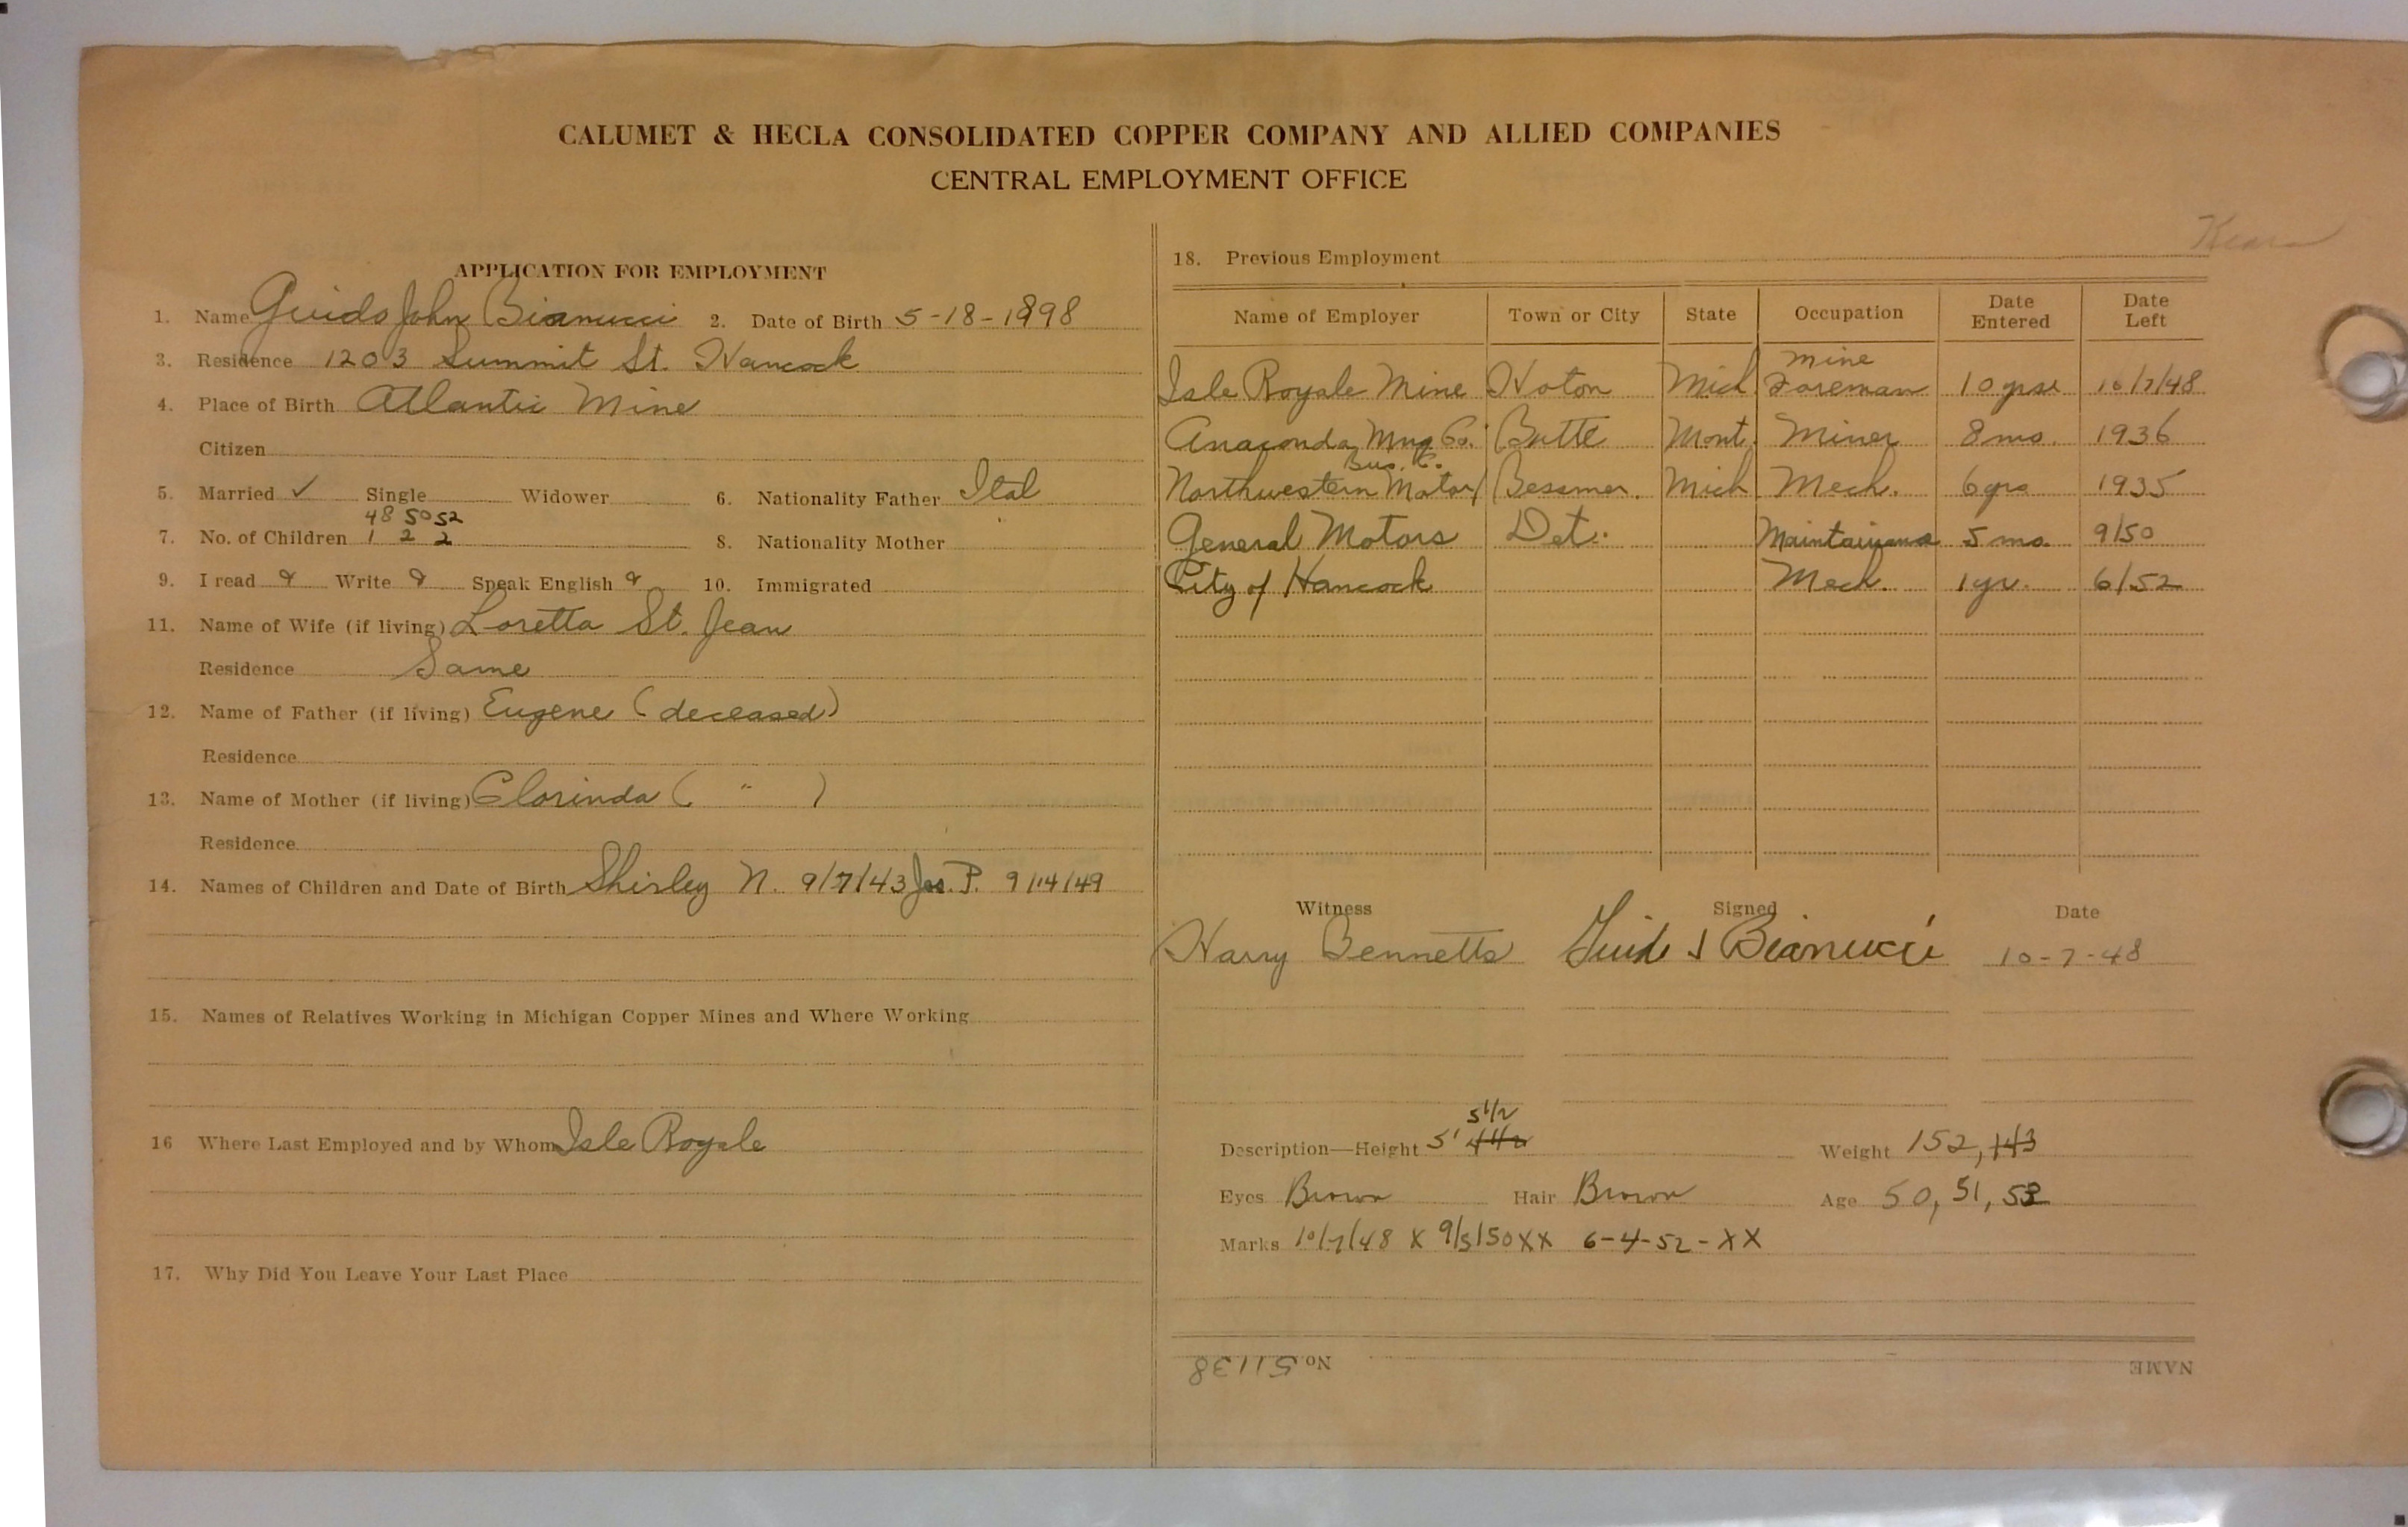 CALUMET & HECLA CONSOLIDATED COPPER COMPANY AND ALLIED COMPANIES
CENTRAL EMPLOYMENT OFFICE
APPLICATION FOR EMPLOYMENT
1. Name Guido John Bianucci 2. Date of Birth 5-18-1898
3. Residence 1203 Summit St. Hancock
4. Place of Birth Atlantic Mine
Citizen
5. Married ✓ Single Widower 6. Nationality Father Ital
48 50 52
7. No. of Children 1 2 2 8. Nationality Mother
9. I read Write Speak English 10. Immigrated
11. Name of Wife (if living) Loretta St. Jean
Residence Same
12. Name of Father (if living) Eugene (deceased)
Residence
13. Name of Mother (if living) Clorinda ( " )
Residence
14. Names of Children and Date of Birth Shirley N. 9/7/43 Jas. P. 9/14/49
15. Names of Relatives Working in Michigan Copper Mines and Where Working
16 Where Last Employed and by Whom Isle Royale
17. Why Did You Leave Your Last Place
18. Previous Employment
Name of Employer Town or City State Occupation Date Entered Date Left
Isle Royale Mine Hoton Mich Mine Foreman 10 yrs 10/7/48
Anaconda Mng Co. Butte Mont. Miner 8 mo. 1936
Bus. Co.
Northwestern Motor Bessmer. Mich Mech. 6 yrs 1935
General Motors Det. Maintainance 5 mo. 9/50
City of Hancock Mech. 1 yr. 6/52
Witness Signed Date
Harry Bennetts Guido J Bianucci 10-7-48
5 1/2
Description—Height 5' 4 1/2 Weight 152, 143
Eyes Brown Hair Brown Age 50, 51, 53
Marks 10/7/48 X 9/5/50 XX 6-4-52-XX
No. 51138 NAME